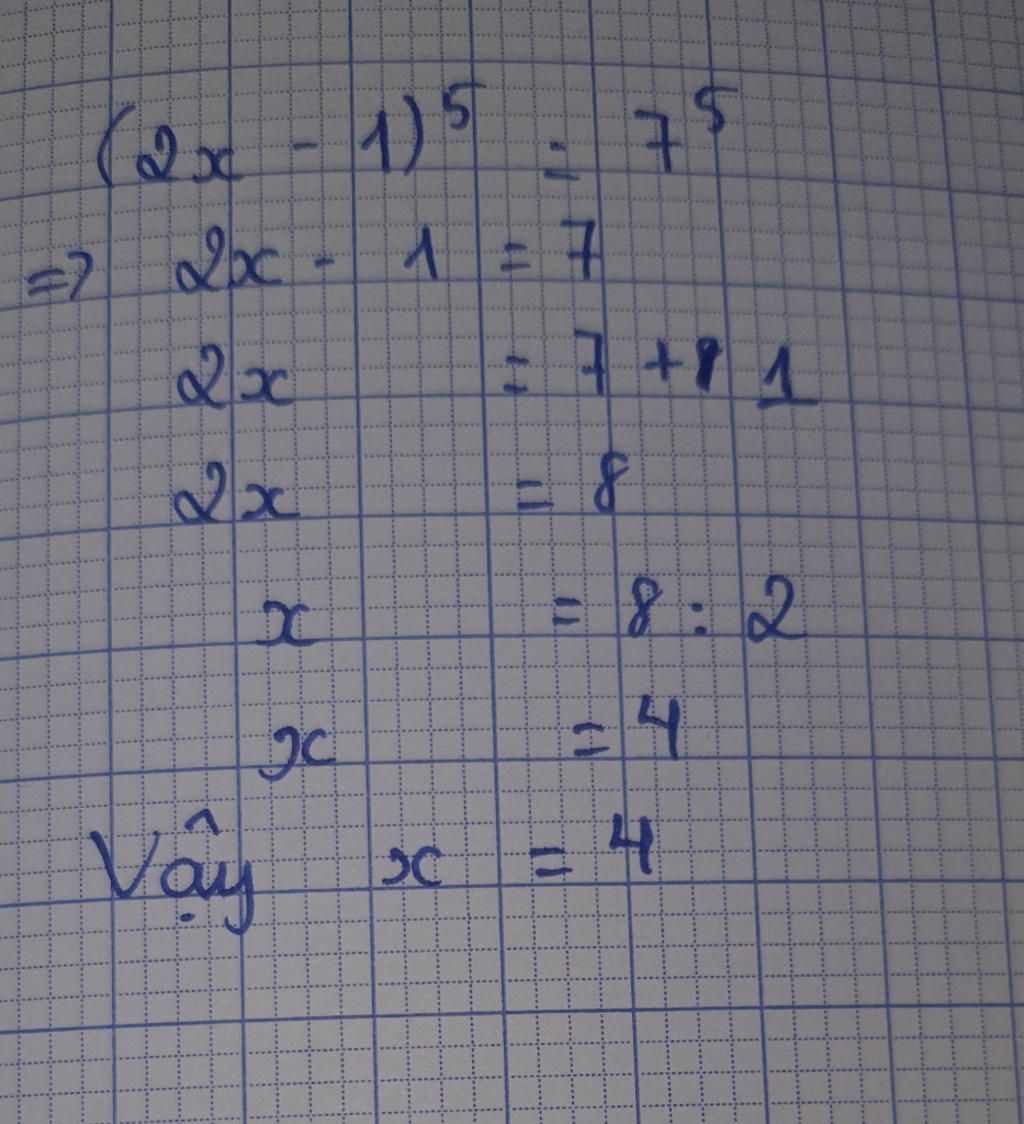 (2x - 1)⁵ = 7⁵
=> 2x - 1 = 7
2x = 7 + 1
2x = 8
x = 8 : 2
x = 4
Vậy x = 4